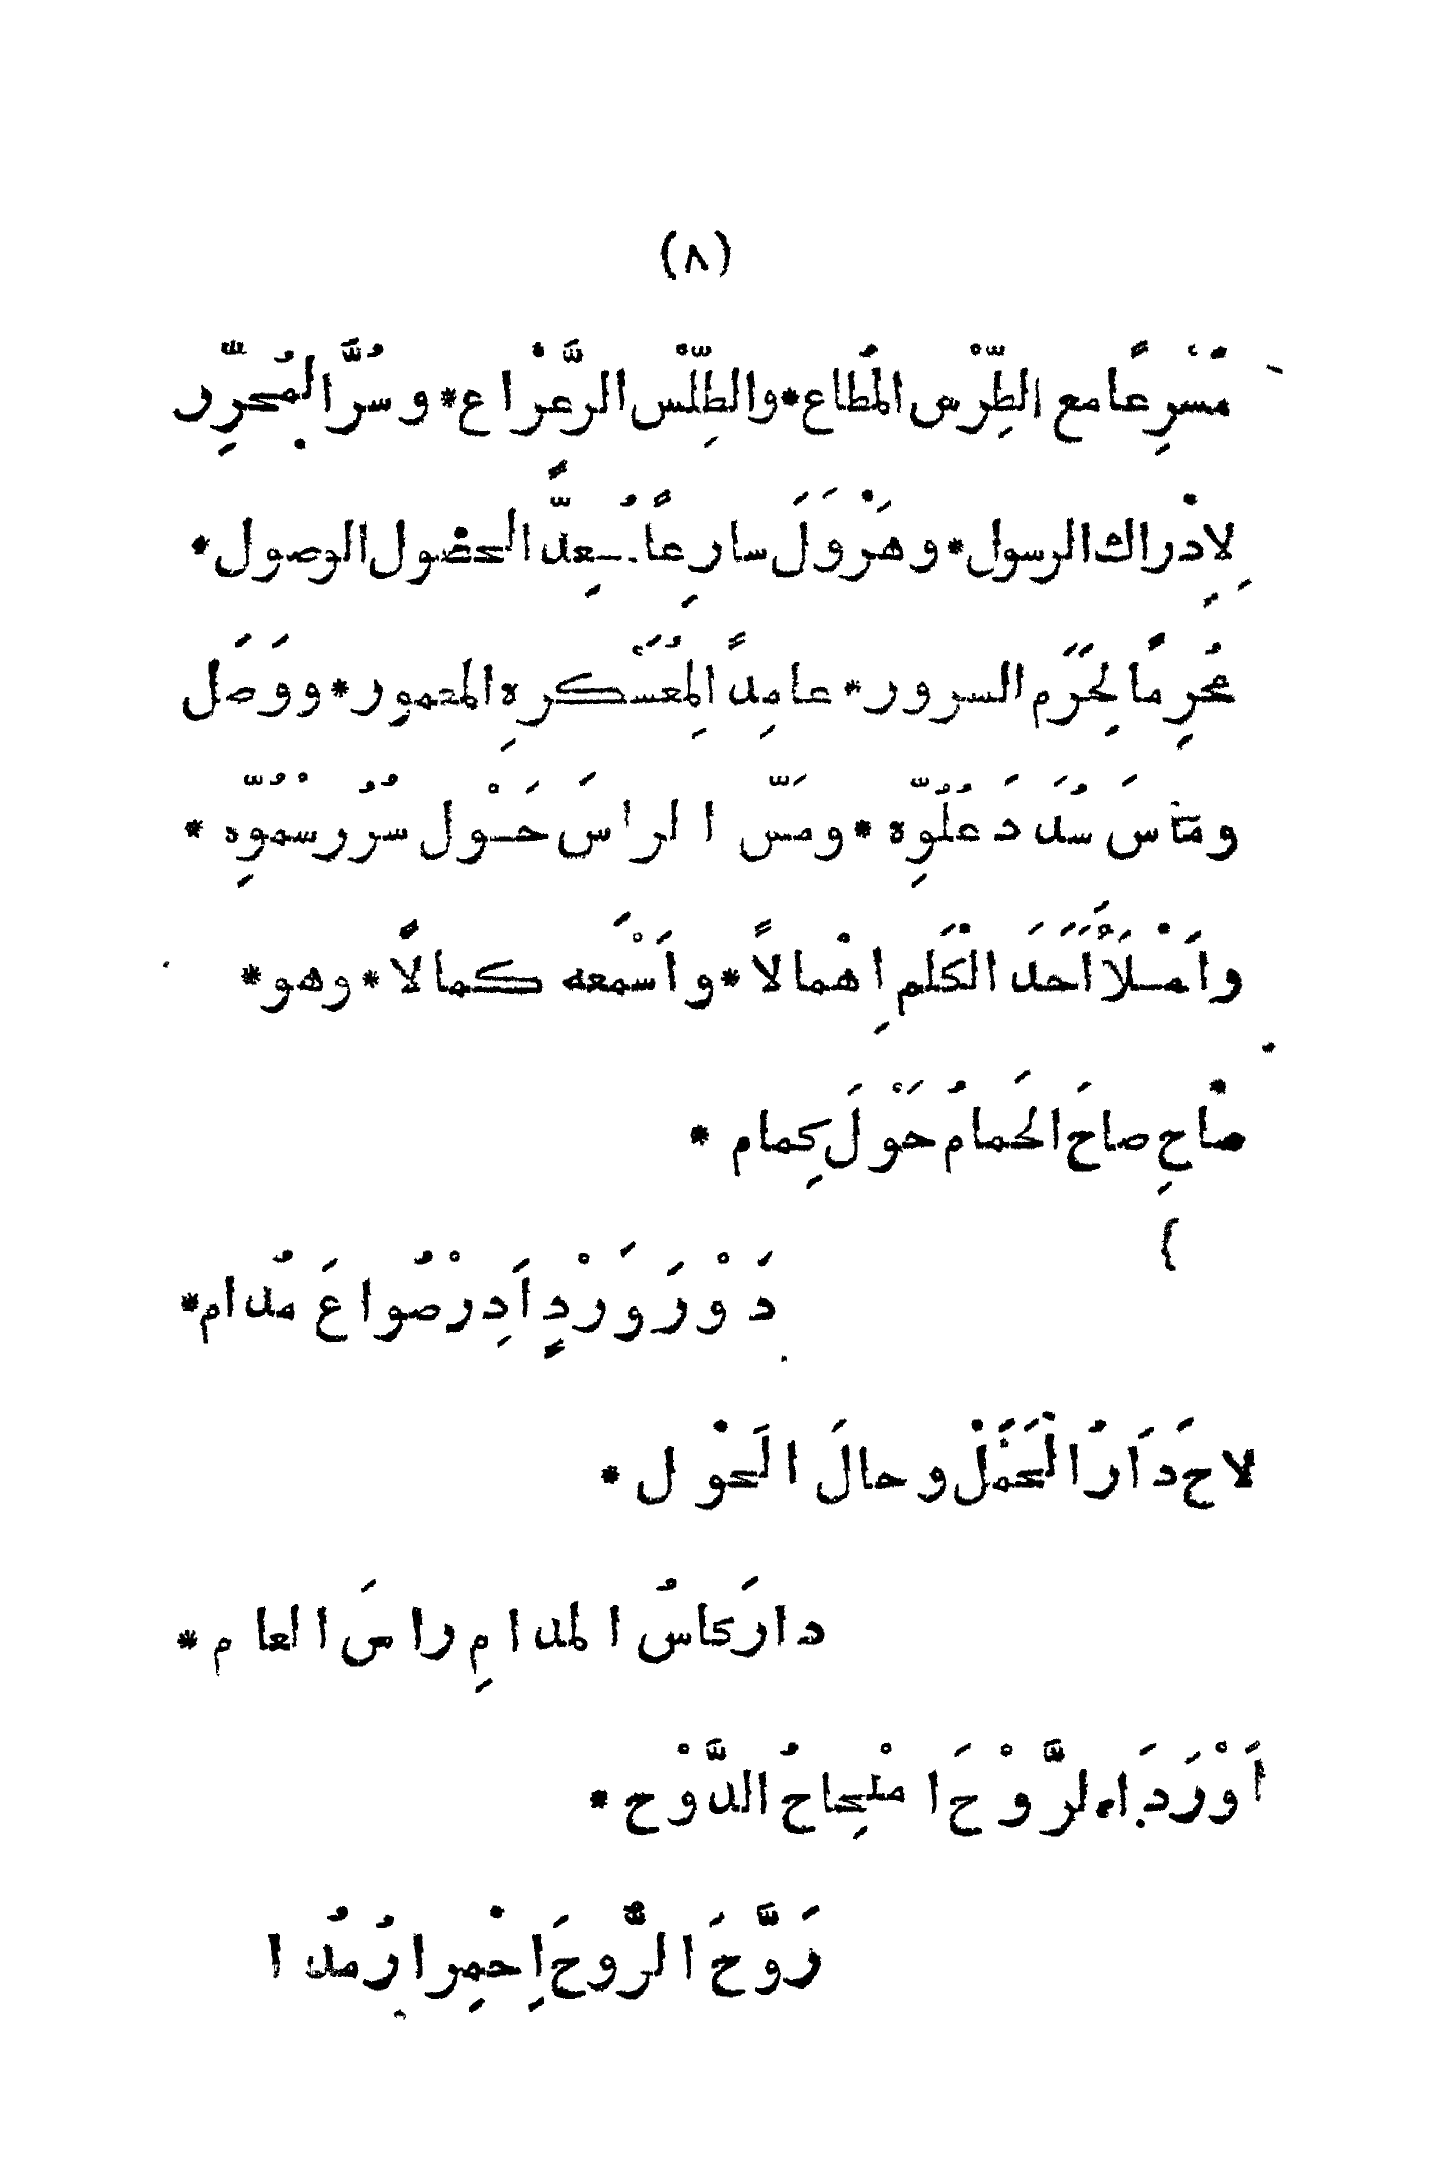 (٨)
مُسْرِعًا مع الطِّرْس المُطاع * والطِّلْس الرَّعْراع * وسُرَّ المُحرِّر
لِإِدْراك الرسول * وهَرْوَلَ سارِعًا مُعِدًّا لحصول الوصول *
مُحْرِمًا لِحَرَم السرور * عامِدًا لِمُعَسْكرِه المعمور * ووَصَلَ
وماسَ سُدَدَ عُلُوِّه * ومَسَّ الراسَ حَوْل سُرُر سُمُوِّه *
وأَمْلَأَ أَحَدَ الْكَلَم إِهْمالًا * وأَسْمَعه كمالًا * وهو *
صاحِ صاحَ الحَمامُ حَوْلَ كِمام *
دَوْرَ وَرْدٍ أَدِرْ صُواعَ مُدام *
لاحَ دَارُ الْحَمَلْ وحالَ الحَوْل *
دارَ كاسُ المدامِ راسَ العام *
أَوْرَدَاه لرَّوْحَ امْلِحاحُ الدَّوْح *
رَوَّحَ الرُّوحَ إِحْمِرارُ مُدا